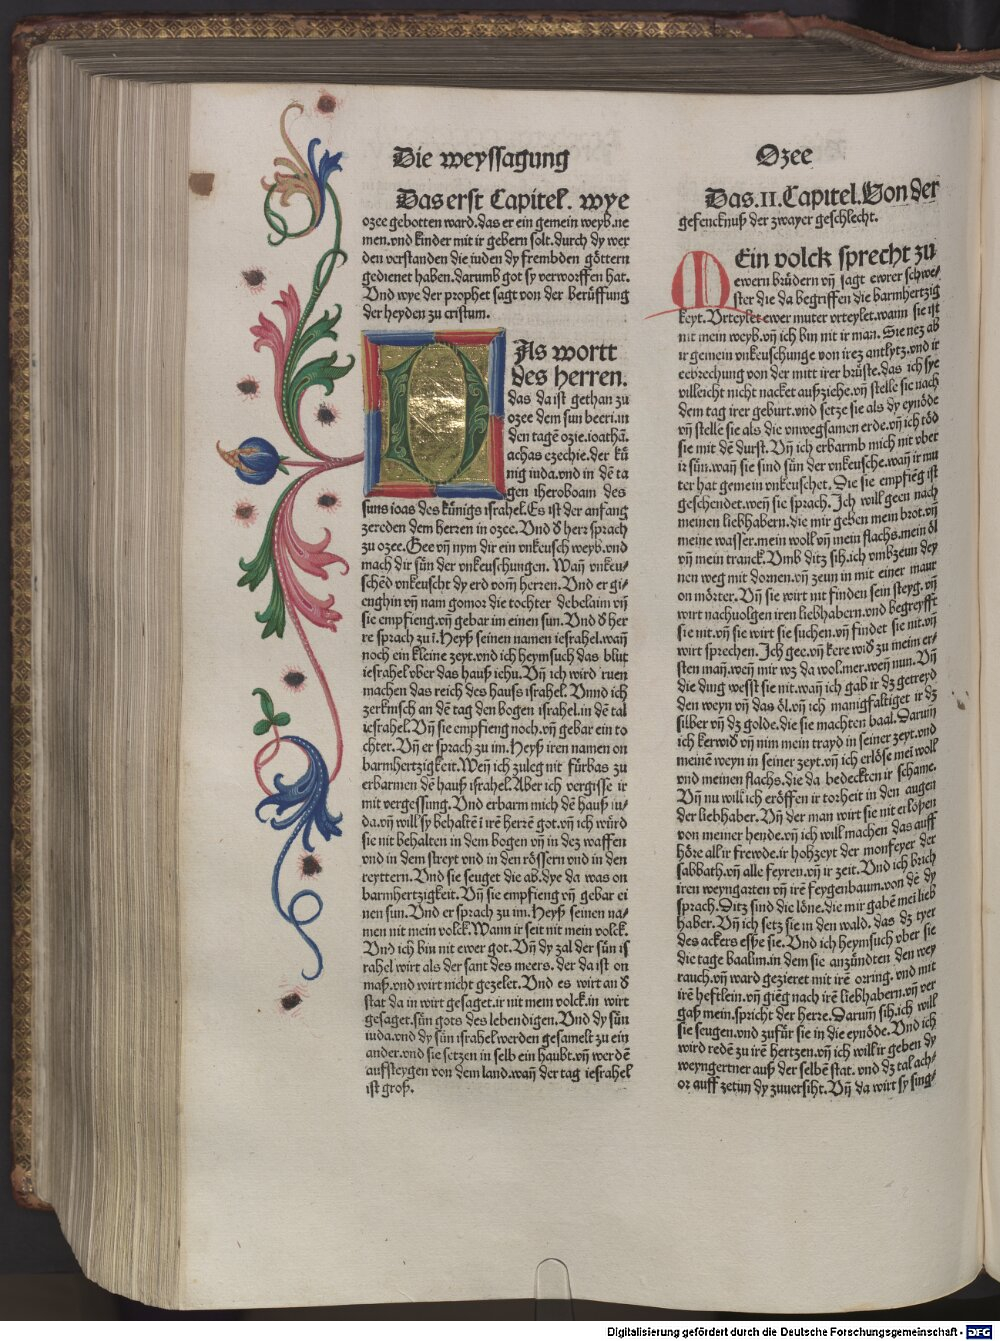 Die weyssagung
Ozee
Das erst Capitel. wye
ozee gebotten ward.das er ein gemein weyb.ne
men.vnd kinder mit ir gebern solt.durch dy wer
den verstanden die iuden dy frembden göttern
gedienet haben.darumb got sy verworffen hat.
Vnd wye der prophet sagt von der berůffung
der heyden zu cristum.
DAs wortt
des herren.
das da ist gethan zu
ozee dem sun beeri.in
den tagē ozie.ioathā.
achas ezechie.der kü
nig iuda.vnd in dē ta
gen iheroboam des
suns ioas des künigs israhel.Es ist der anfang
zereden dem herren in ozee.Vnd d̕ herr sprach
zu ozee.Gee vñ nym dir ein vnkeusch weyb.vnd
mach dir sün der vnkeuschungen. Wañ vnkeu-
schēd vnkeuscht dy erd vom̄ herren. Vnd er gi-
enghin vñ nam gomor die tochter debelaim vñ
sie empfieng.vñ gebar im einen sun.Vnd d̕ her
re sprach zu ī.Heyß seinen namen iesrahel.wañ
noch ein kleine zeyt.vnd ich heymsuch das blut
iesrahel vber das hauß iehu.Vñ ich wird ruen
machen das reich des hauss israhel. Vnnd ich
zerknisch an dē tag den bogen israhel.in dē tal
iesrahel.Vñ sie empfieng noch.vñ gebar ein to
chter.Vñ er sprach zu im.Heyß iren namen on
barmhertzigkeit.Weñ ich zuleg nit fürbas zu
erbarmen dē hauß israhel.Aber ich vergisse ir
mit vergessung.Vnd erbarm mich dē hauß iu-
da.vñ will sy behaltē ī irē herrē got.vñ ich würd
sie nit behalten in dem bogen vñ in dez waffen
vnd in dem streyt vnd in den rössern vnd in den
reyttern. Vnd sie seuget die ab.dye da was on
barmhertzigkeit. Vñ sie empfieng vñ gebar ei
nen sun.Vnd er sprach zu im.Heyß seinen na-
men nit mein volck.Wann ir seit nit mein volck.
Vnd ich bin nit ewer got.Vñ dy zal der sün is
rahel wirt als der sant des meers. der da ist on
maß.vnd wirt nicht gezelet.Vnd es wirt an d̕
stat da in wirt gesaget.ir nit mein volck.in wirt
gesaget.sün gots des lebendigen.Vnd dy sün
iuda.vnd dy sün israhel werden gesamelt zu ein
ander.vnd sie setzen in selb ein haubt.vñ werdē
auffsteygen von dem land.wañ der tag iesrahel
ist groß.
Das.II.Capitel.Von der
gefencknuß der zwayer geschlecht.
MEin volck sprecht zu
ewern brüdern vñ sagt ewrer schwe-
ster die da begriffen die barmhertzig
keyt.Vrteylet ewer muter vrteylet.wann sie ist
nit mein weyb.vñ ich bin nit ir man. Sie nez ab
ir gemein vnkeuschunge von irez antlytz.vnd ir
eebrechung von der mitt irer brüste.das ich sye
villeicht nicht nacket außziehe.vñ stelle sie nach
dem tag irer geburt.vnd setze sie als dy eynöde
vñ stelle sie als die vnwegsamen erde.vñ ich töd
sie mit dē durst. Vñ ich erbarmb mich nit vber
ir sün.wañ sie sind sün der vnkeusche.wañ ir mu
ter hat gemein vnkeuschet. Die sie empfieng ist
geschendet.weñ sie sprach. Ich will geen nach
meinen liebhabern.die mir geben mein brot.vñ
meine wasser.mein woll vñ mein flachs.mein öl
vñ mein tranck.Vmb ditz sih.ich vmbzeun dey
nen weg mit dornen.vñ zeun in mit einer maur
on mörter. Vñ sie wirt nit finden sein steyg. vñ
wirt nachuolgen iren liebhabern.vnd begreyfft
sie nit.vñ sie wirt sie suchen.vñ findet sie nit.vñ
wirt sprechen. Ich gee.vñ kere wid̕ zu meim er-
sten mañ.weñ mir wz da wol.mer.weñ nun. Vñ
die ding wesst sie nit.wañ ich gab ir dz getreyd
den weyn vñ das öl.vñ ich manigfaltiget ir dz
silber vñ dz golde.die sie machten baal. Darum
ich kerwid̕ vñ nim mein trayd in seiner zeyt.vnd
meinē weyn in seiner zeyt.vñ ich erlöse mei woll
vnd meinen flachs.die da bedeckten ir schame.
Vñ nu will ich eröffen ir torheit in den augen
der liebhaber. Vñ der man wirt sie nit erlösen
von meiner hende.vñ ich will machen das auff
höre all ir frewde.ir hohzeyt der monfeyer der
sabbath.vñ alle feyren.vñ ir zeit. Vnd ich brich
iren weyngarten vñ irē feygenbaum.von dē dy
sprach.Ditz sind die löne.die mir gabē mei lieb
haber. Vñ ich setz sie in den wald. das dz tyer
des ackers esße sie. Vnd ich heymsuch vber sie
die tage baalim.in dem sie anzündten den wey
rauch.vñ ward gezieret mit irē orring. vnd mit
irē heftlein.vñ giēg nach irē liebhabern.vñ ver
gaß mein.spricht der herre.Darum sih.ich will
sie seugen.vnd zufür sie in die eynöde.Vnd ich
wird redē zu irē hertzen.vñ ich will ir geben dy
weyngertner auß der selbē stat. vnd dz tal ach-
or auff zetun dy zuuersiht.Vñ da wirt sy sing-
Digitalisierung gefördert durch die Deutsche Forschungsgemeinschaft - DFG